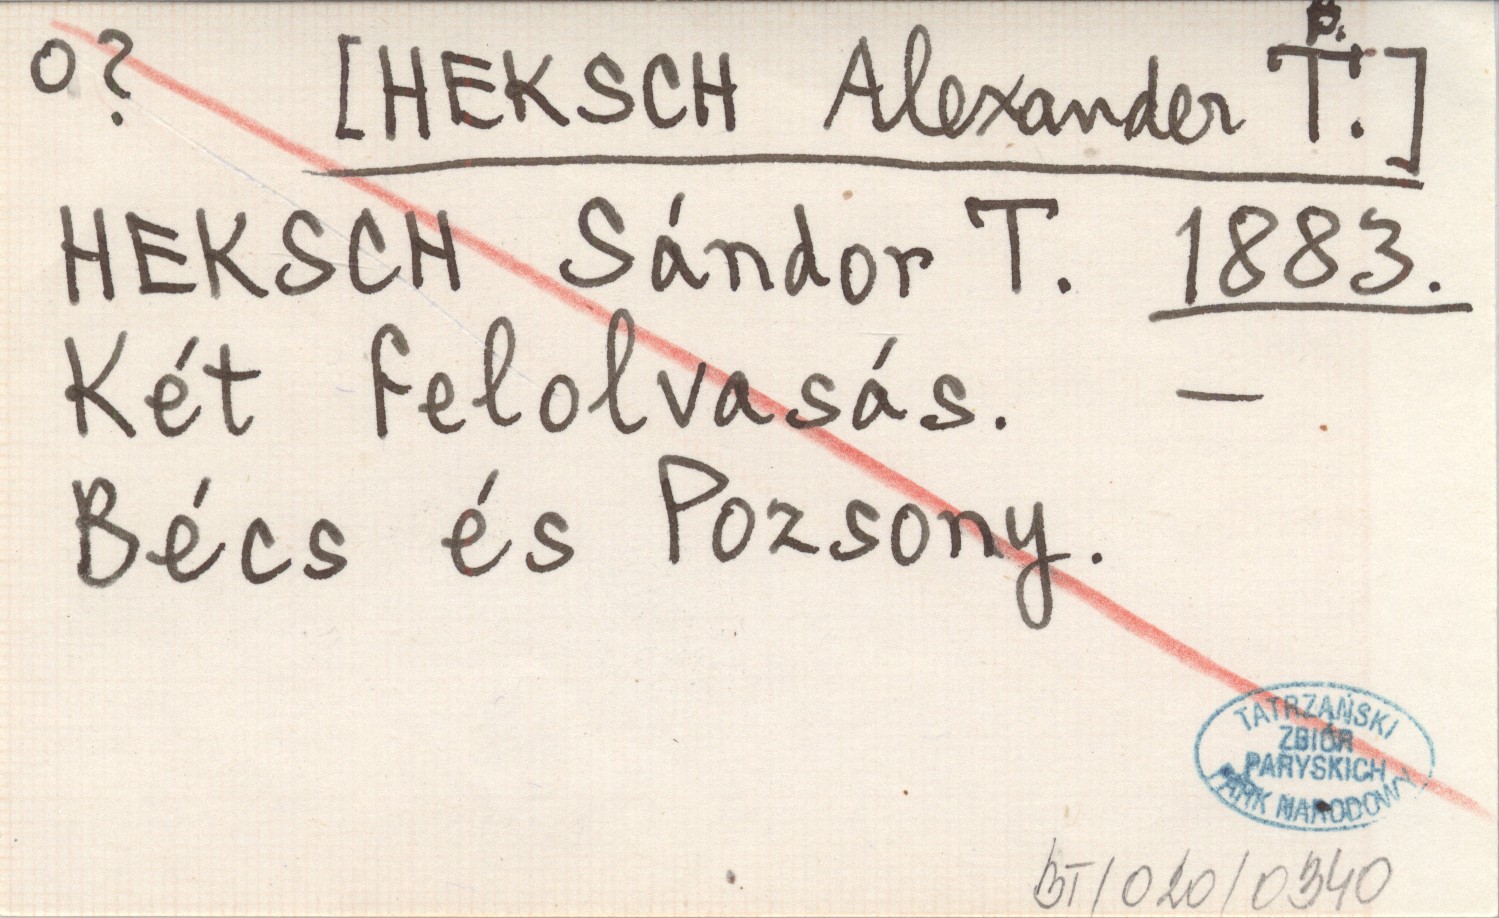 o? [HEKSCH Alexander T.]
HEKSCH Sándor T. 1883.
Két felolvasás. —
Bécs és Pozsony.
TATRZAŃSKI
ZBIÓR
PARYSKICH
PARK NARODOWY
BT/020/0340